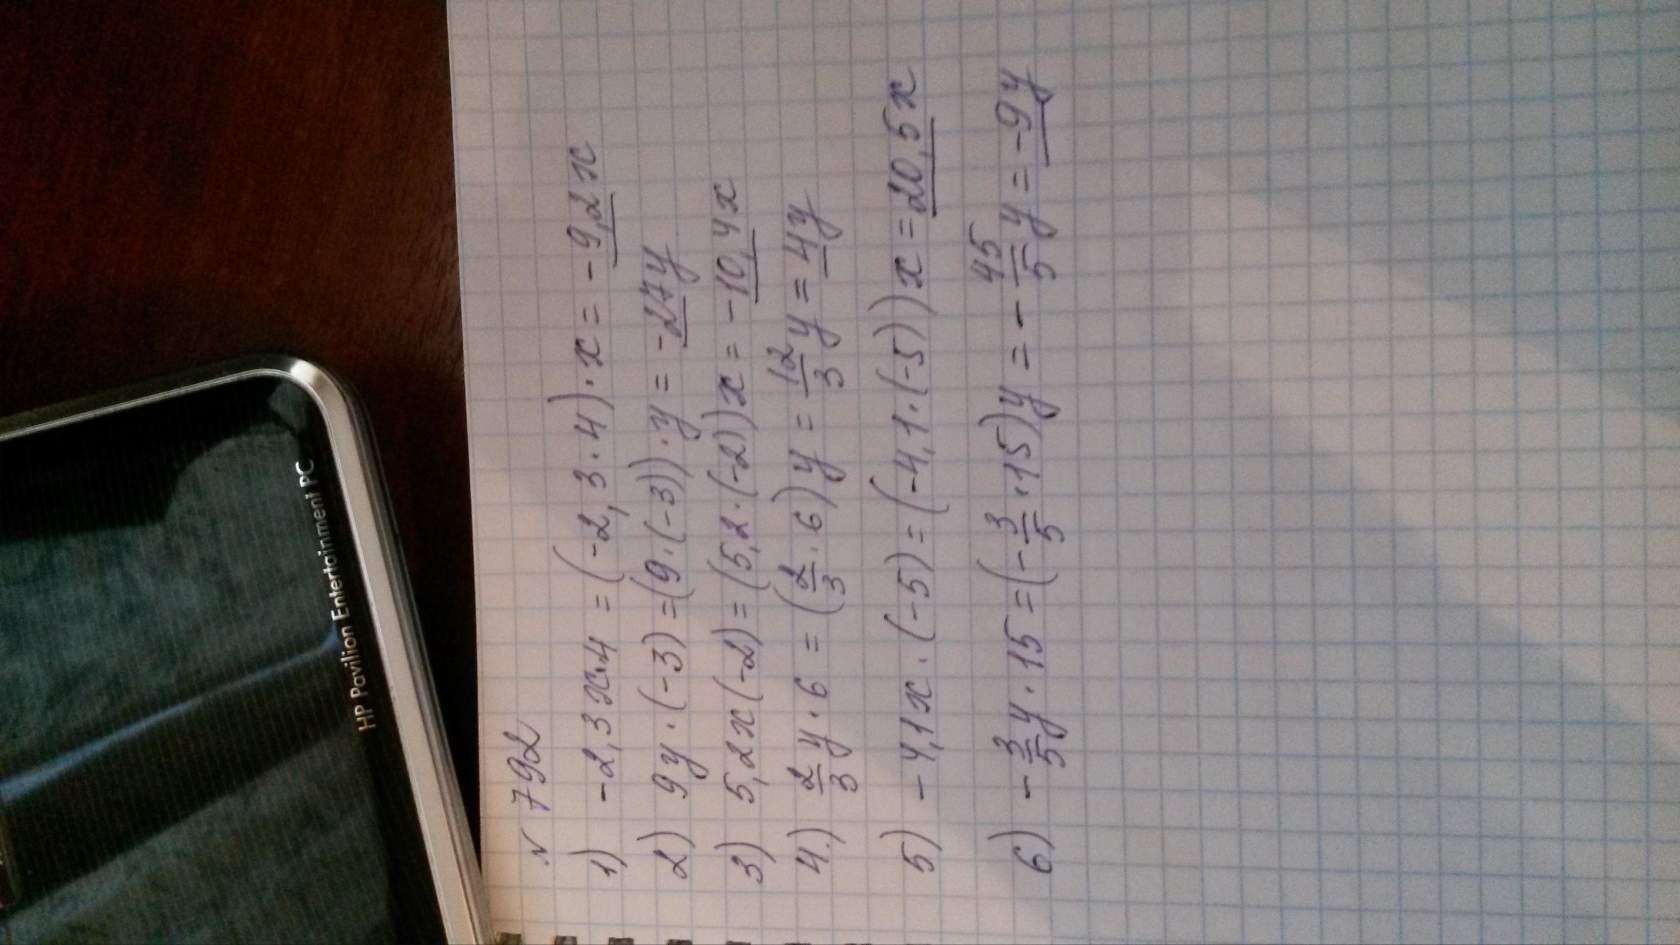 HP Pavilion Entertainment PC
N 792
1) -2,3x·4 = (-2,3·4)·x = -9,2x
2) 9y·(-3) = (9·(-3))·y = -27y
3) 5,2x(-2) = (5,2·(-2))x = -10,4x
4.) 2/3 y·6 = (2/3·6)y = 12/3 y = 4y
5) -4,1x·(-5) = (-4,1·(-5))x = 20,5x
6) -3/5 y·15 = (-3/5·15)y = -45/5 y = -9y